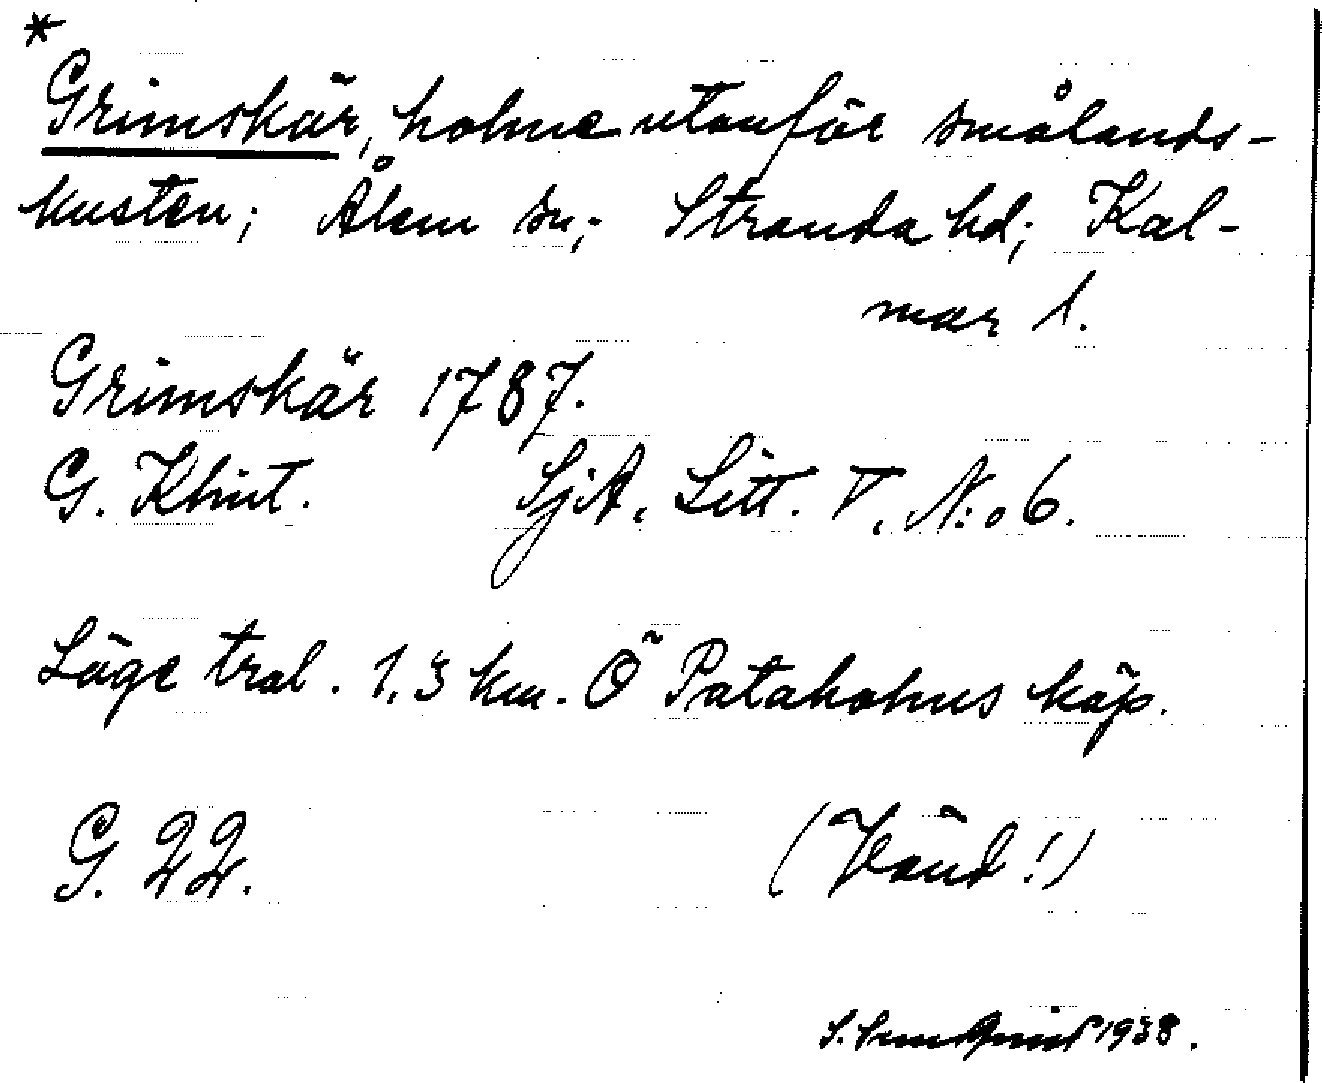 *
Grimskär, holme utanför smålands-
kusten; Ålem sn; Stranda hd; Kal-
mar l.
Grimskär 1787.
G. Klint. SjA. Litt. V. N:o 6.
Läge tral. 1,3 km. Ö Pataholms köp.
G. 22. (Vänd!)
S. Sundqvist 1938.